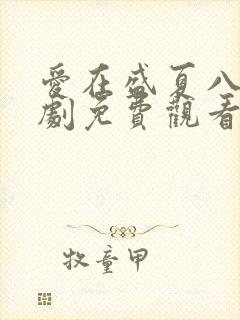 愛在盛夏八
劇免費觀看
牧童甲